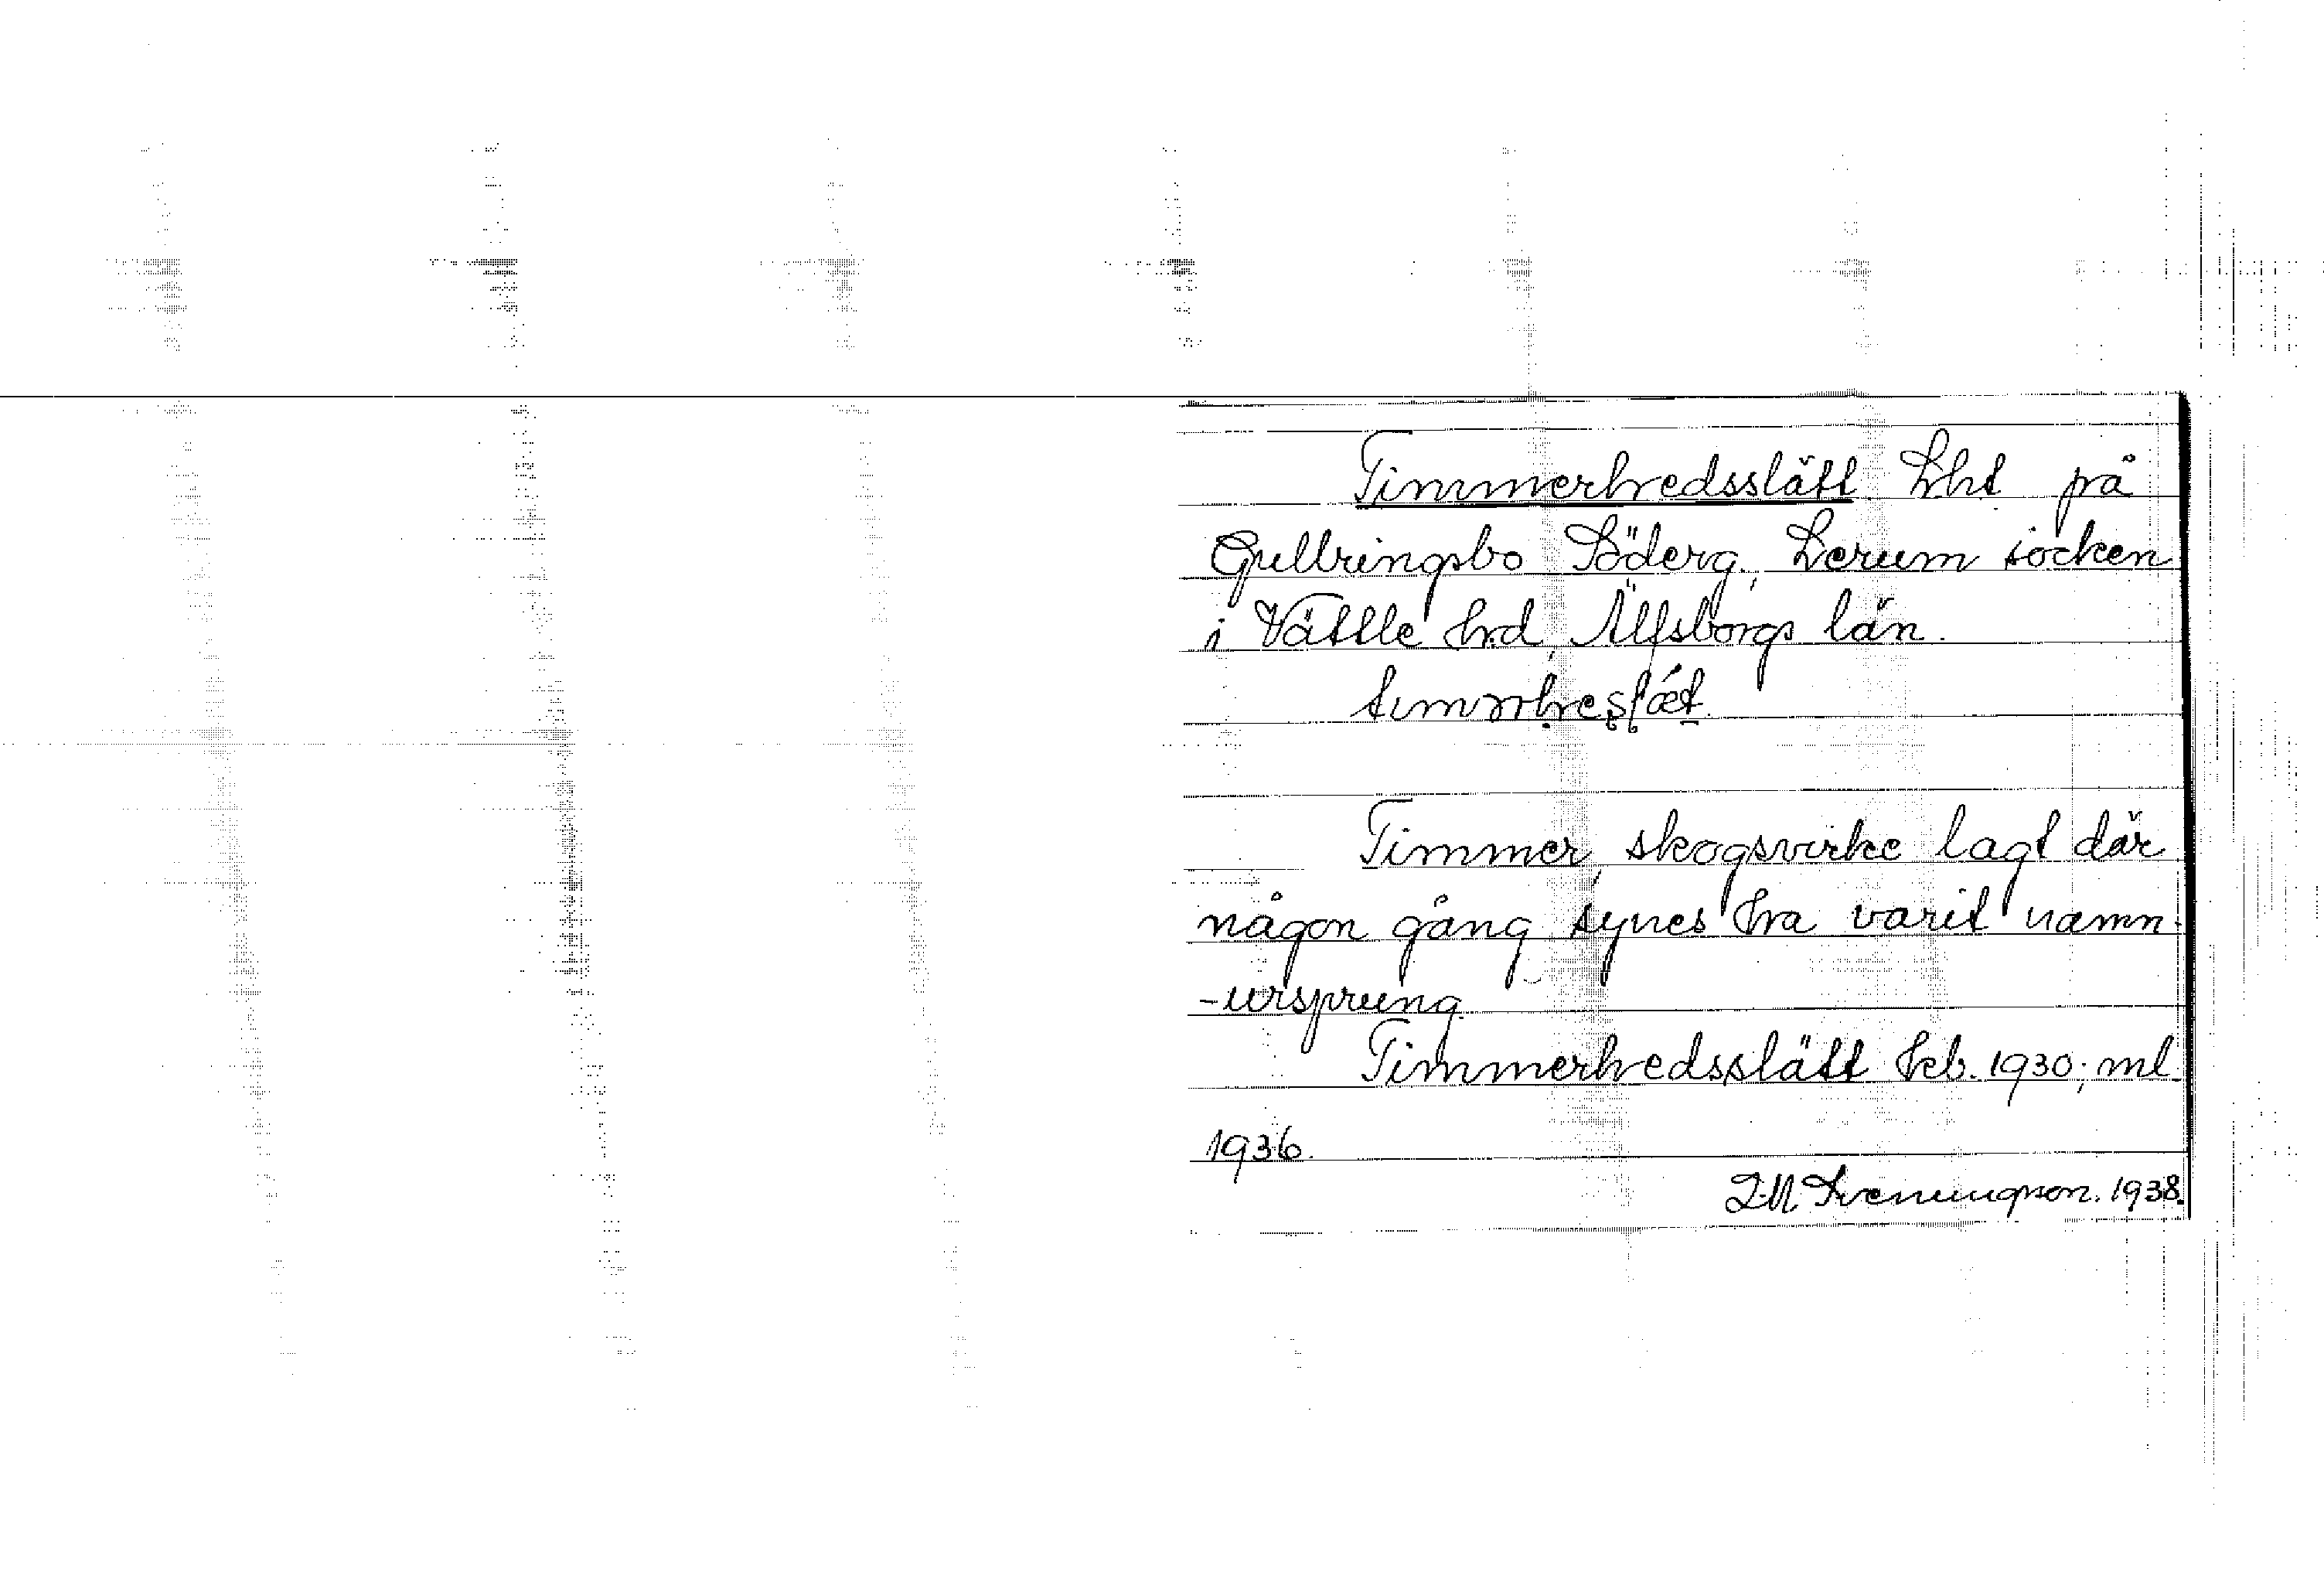 Timmerhedsslätt Lht på
Gullringsbo Söderg., Lerum socken
i Vättle hd, Älfsborgs län.
Timmer, skogsvirke lagt där
någon gång synes ha varit namn-
-ursprung.
Timmerhedsslätt Jeb. 1930; ml
1936.
1938.